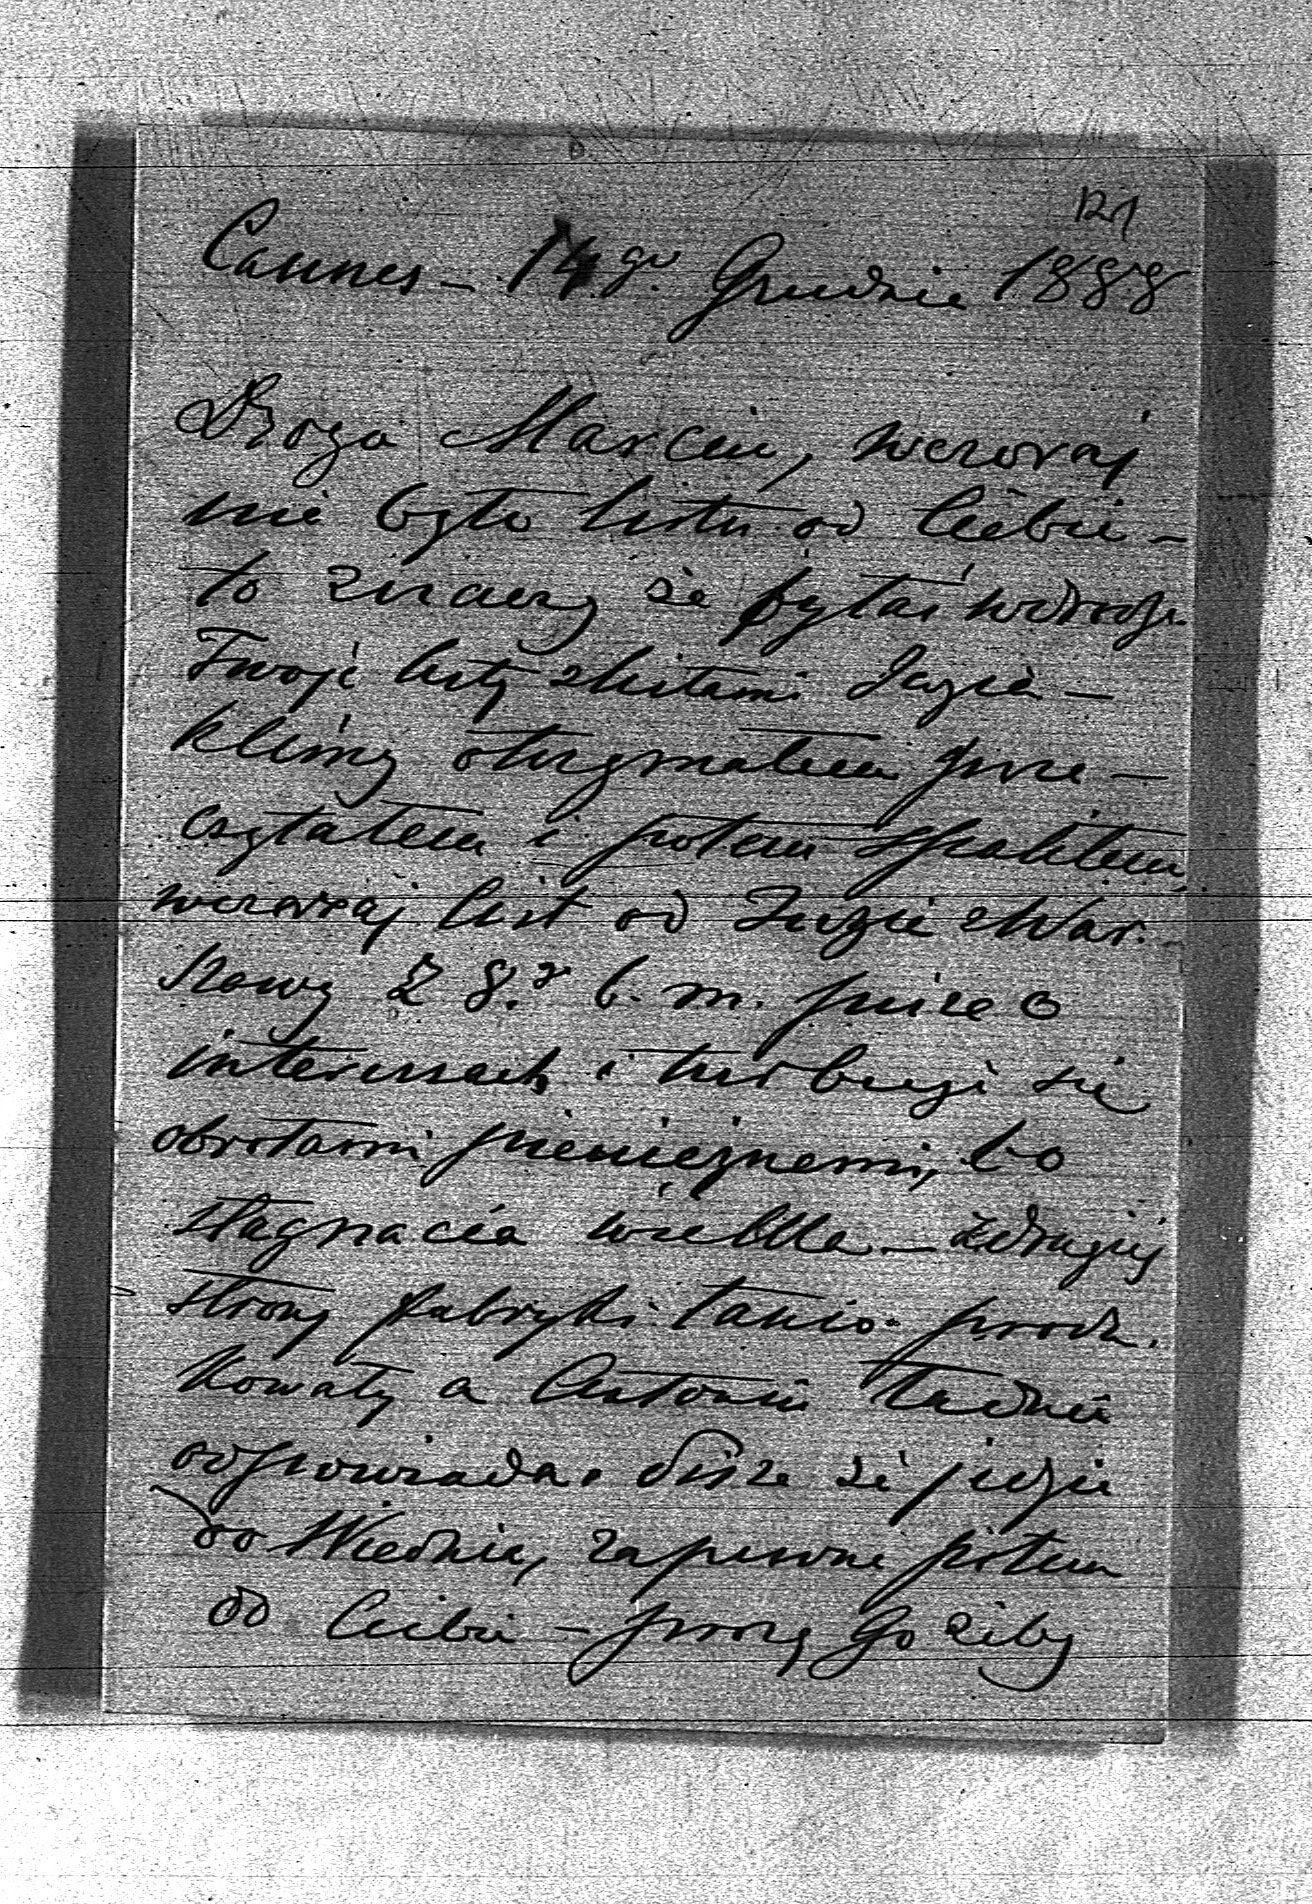 121
Cannes – 14go. Grudnia 1888
Droga Marciu, wczoraj
nie było listu od Ciebie –
to znaczy że byłaś w drodze
Twoje listy z listami Józia –
Klimy otrzymałem prze –
czytałem i potem spaliłem,
wczoraj list od Józia z War.
szawy z 8.o b. m. pisze o
interesach i turbuje się
obrotami pieniężnemi, bo
stagnacia wielka – z drugiej
strony fabryki tanio produ.
kowały a Antonin ładnie
odpowiada. Pisze że jedzie
do Wiednia, zapewne potem
do Ciebie – proszę go żeby